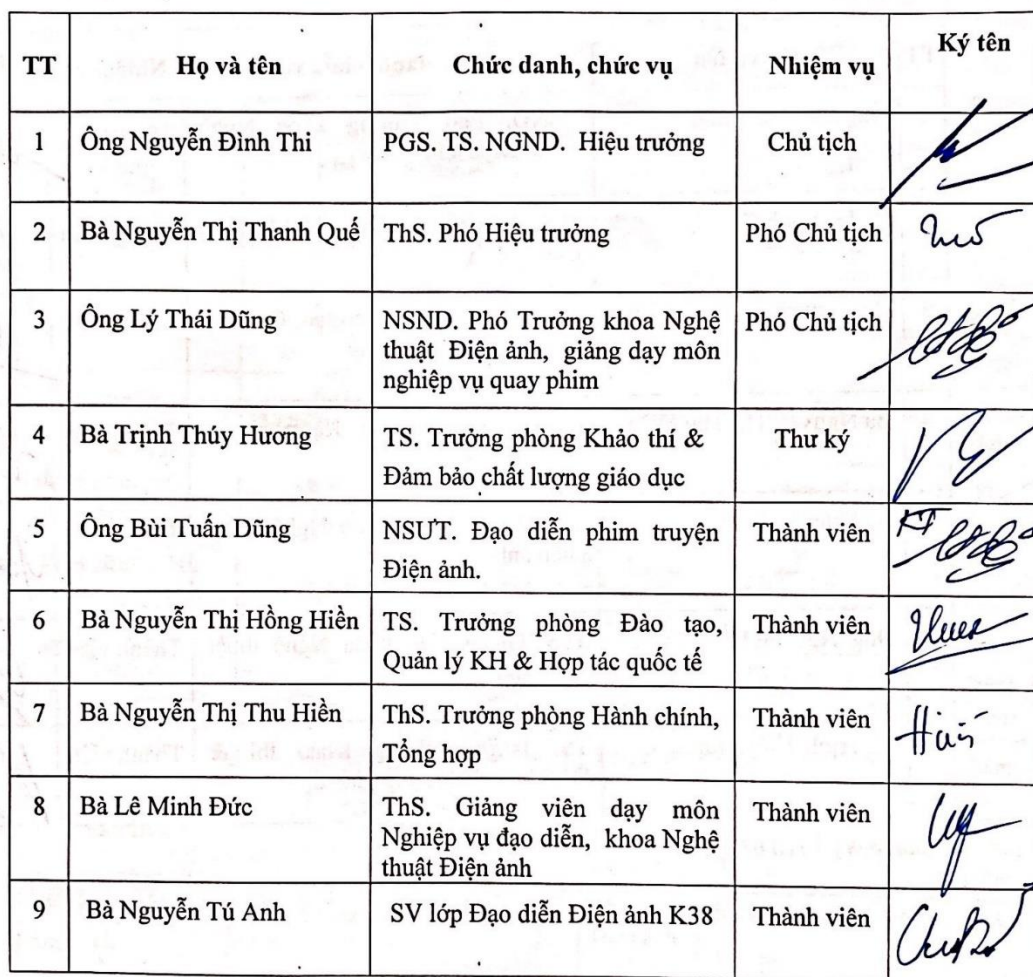 TT Họ và tên Chức danh, chức vụ Nhiệm vụ Ký tên
1 Ông Nguyễn Đình Thi PGS. TS. NGND. Hiệu trưởng Chủ tịch
2 Bà Nguyễn Thị Thanh Quế ThS. Phó Hiệu trưởng Phó Chủ tịch
3 Ông Lý Thái Dũng NSND. Phó Trưởng khoa Nghệ Phó Chủ tịch
thuật Điện ảnh, giảng dạy môn
nghiệp vụ quay phim
4 Bà Trịnh Thúy Hương TS. Trưởng phòng Khảo thí & Thư ký
Đảm bảo chất lượng giáo dục
5 Ông Bùi Tuấn Dũng NSUT. Đạo diễn phim truyện Thành viên KT
Điện ảnh.
6 Bà Nguyễn Thị Hồng Hiền TS. Trưởng phòng Đào tạo, Thành viên
Quản lý KH & Hợp tác quốc tế
7 Bà Nguyễn Thị Thu Hiền ThS. Trưởng phòng Hành chính, Thành viên
Tổng hợp
8 Bà Lê Minh Đức ThS. Giảng viên dạy môn Thành viên
Nghiệp vụ đạo diễn, khoa Nghệ
thuật Điện ảnh
9 Bà Nguyễn Tú Anh SV lớp Đạo diễn Điện ảnh K38 Thành viên